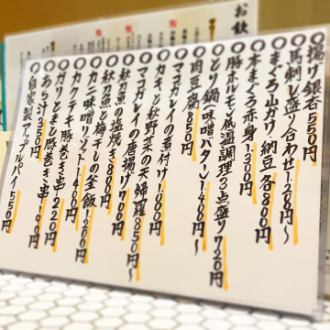 お飲
○揚げ銀杏 550円
○馬刺し盛り合わせ1.280円〜
○まぐろ山かけ/納豆 各800円
○本まぐろ赤身 1.300円
○豚ホルモン低温調理3点盛り720円
○とり鍋(味噌バター)1.480円〜
○肉豆腐 850円
○マコガレイの煮付け 1.000円
○カキと秋野菜の天婦羅 850円〜
○マコガレイの唐揚げ 700円
○秋刀魚の塩焼き 800円
○秋刀魚と梅干しの釜飯 1.200円
○カニ味噌リゾット 1.480円
○カクテキ豚巻き串 220円
○ガリとまと豚巻き串
○あら汁 350円
○自家製アップルパイ 550円